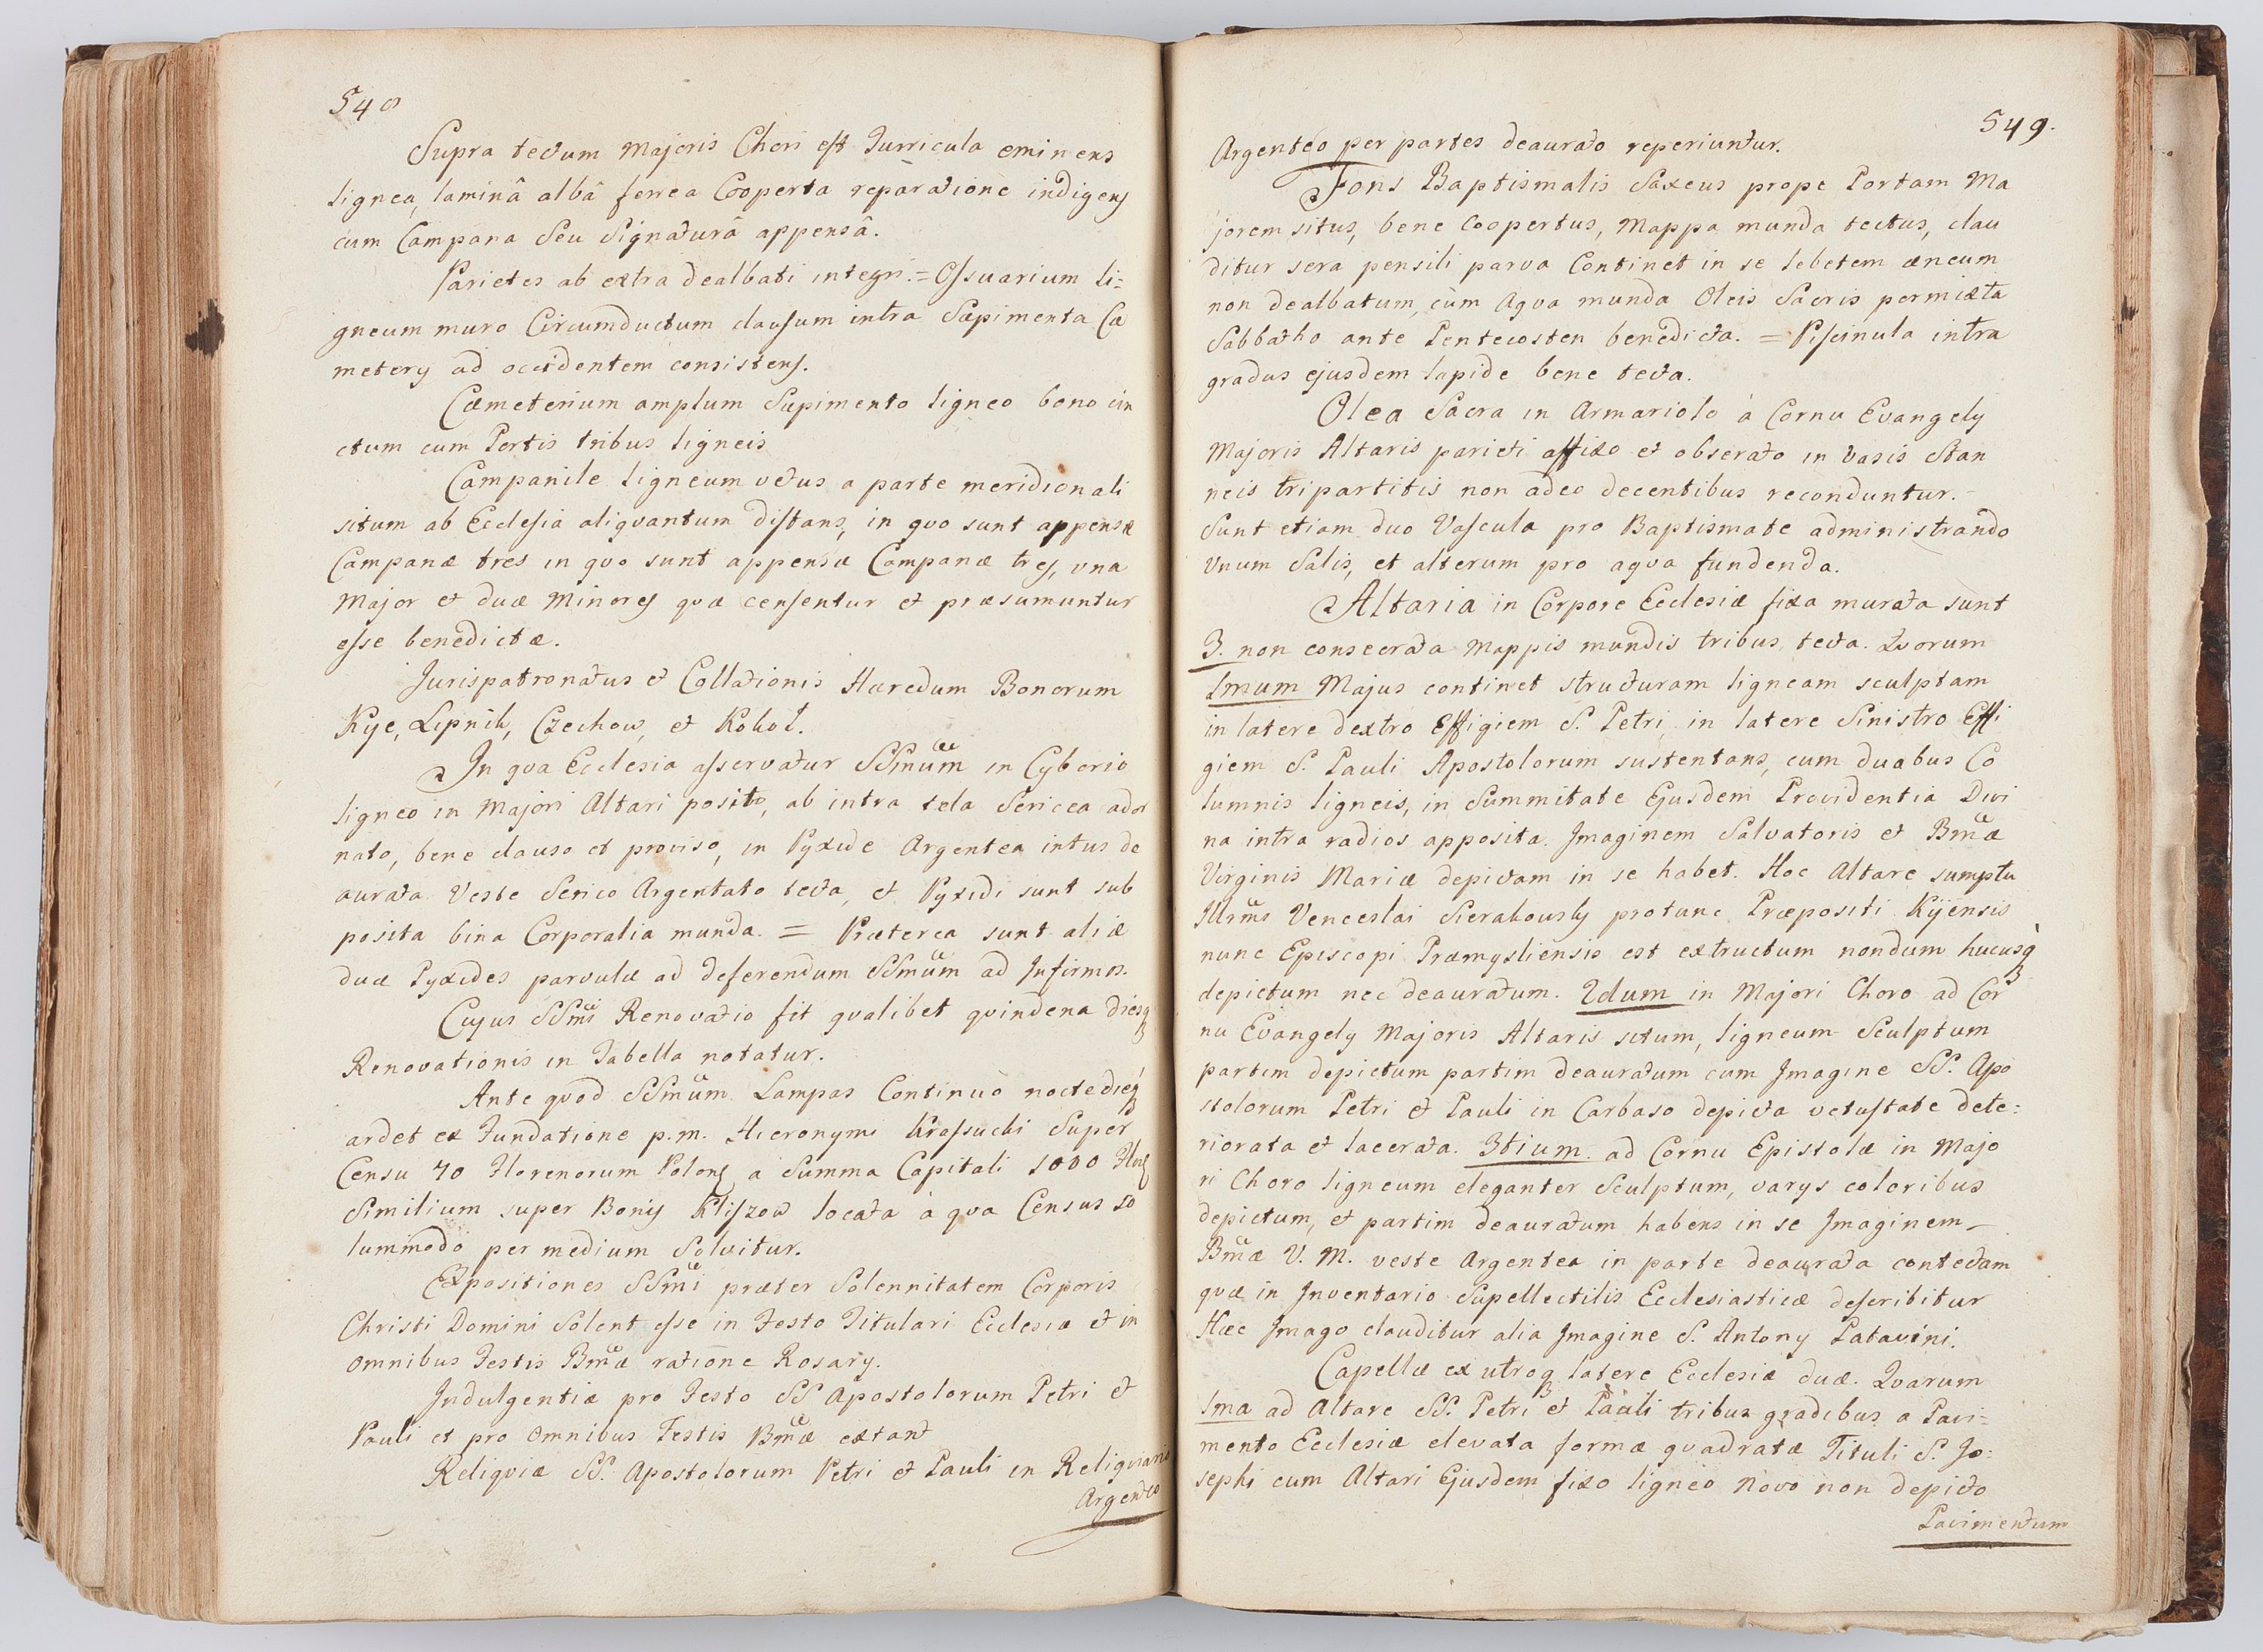 548
Supra tectum Majoris Chori est Turricula eminens
lignea, laminâ albâ ferrea Cooperta reparatione indigens
cum Campana Seu Signaturâ appensâ.
Parietes ab extra dealbati integri. = Ossuarium li=
gneum muro Circumductum clausum intra Sæpimenta Cæ
metery ad occidentem consistens.
Cæmeterium amplum Sepimento ligneo bono cin
ctum cum Portis tribus ligneis
Campanile ligneum vetus a parte meridionali
situm ab Ecclesia aliquantum distans, in quo sunt appensæ
Campanæ tres in quo sunt appensæ Campanæ tres, una
Major et duæ Minores quæ censentur et præsumuntur
esse benedictæ.
Jurispatronatus et Collationis Hæredum Bonorum
Kye, Lipnik, Czechow, et Kokot.
In qua Ecclesia asservatur SSmum in Cyborio
ligneo in Majori Altari posito, ab intra tela Sericea ador
nato, bene clauso et proviso, in Pyxide Argentea intus de
aurata Veste Serico Argentato tecta, et Pyxidi sunt sub
posita bina Corporalia munda. = Præterea sunt aliæ
duæ Pyxides parvulæ ad deferendum SSmum ad Infirmos.
Cujus SSmi Renovatio fit qualibet quindena diesq
Renovationis in Tabella notatur.
Ante quod SSmum Lampas Continuò noctedieq
ardet ex Fundatione p. m. Hieronymi Krassucki Super
Censu 70 Florenorum Polon a Summa Capitali 1000 Flor
Similium super Bonis Kliszow locata à qua Census so
lummodo per medium Solvitur.
Expositiones SSmi præter Solennitatem Corporis
Christi Domini Solent esse in Festo Titulari Ecclesiæ et in
omnibus Festis Bmæ ratione Rosary.
Indulgentiæ pro Festo SS Apostolorum Petri et
Pauli et pro Omnibus Festis Bmæ extant
Reliquiæ SS. Apostolorum Petri et Pauli in Reliquiario
Argenteo
549.
Argenteo per partes deaurato reperiuntur.
Fons Baptismalis Saxeus prope Portam Ma
jorem situs, bene coopertus, Mappa munda tectus, clau
ditur sera pensili parva Continet in se lebetem æneum
non dealbatum, cum Aqua munda Oleis Sacris permixta
Sabbatho ante Pentecosten benedicta. = Piscinula intra
gradus ejusdem lapide bene tecta.
Olea Sacra in Armariolo à Cornu Evangely
Majoris Altaris parieti affixo et obserato in Vasis Stan
neis tripartitis non adeo decentibus reconduntur.
Sunt etiam duo Vascula pro Baptismate administrando
Vnum Salis, et alterum pro aqua fundenda.
Altaria in Corpore Ecclesiæ fixa murata sunt
3. non consecrata Mappis mundis tribus tecta. Quorum
1mum Majus continet structuram ligneam sculptam
in latere dextro Effigiem S. Petri, in latere Sinistro Effi
giem S. Pauli Apostolorum sustentans, cum duabus Co
lumnis ligneis, in Summitate Ejusdem Providentia Divi
na intra radios apposita. Imaginem Salvatoris et Bmæ
Virginis Mariæ depictam in se habet. Hoc Altare sumptu
Illrmi Venceslai Sierakowsky protunc Præpositi Kijensis
nunc Episcopi Præmysliensis est extructum nondum hucusq
depictum nec deauratum. 2dum in Majori Choro ad Cor
nu Evangely Majoris Altaris situm, ligneum Sculptum
partim depictum partim deauratum cum Imagine SS. Apo
stolorum Petri et Pauli in Carbaso depicta vetustate dete=
riorata et lacerata. 3tium. ad Cornu Epistolæ in Majo
ri Choro ligneum eleganter Sculptum, varys coloribus
depictum, et partim deauratum habens in se Imaginem
Bmæ V. M. veste Argentea in parte deaurata contectam
quæ in Inventario Supellectilis Ecclesiasticæ describitur
Hæc Imago clauditur alia Imagine S. Antony Patavini.
Capellæ ex utroq latere Ecclesiæ duæ. Quarum
1ma ad Altare SS. Petri et Pauli tribus gradibus a Pavi=
mento Ecclesiæ elevata formæ quadratæ Tituli S. Jo=
sephi cum Altari Ejusdem fixo ligneo Novo non depicto
Pavimentum